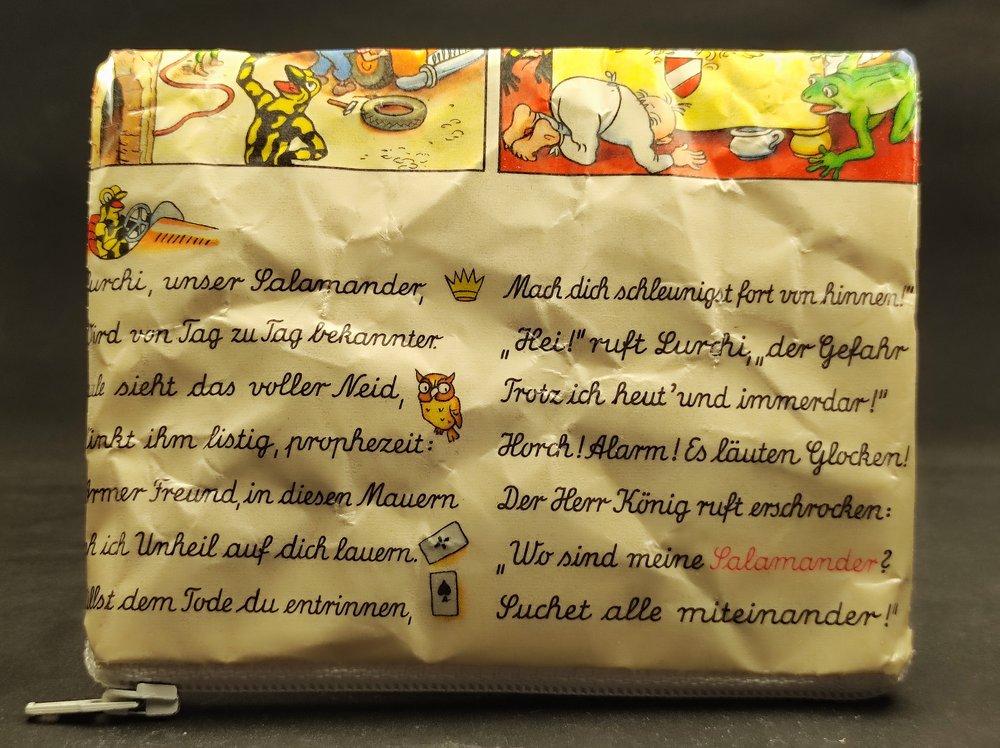 urchi, unser Salamander,
ird von Tag zu Tag bekannter.
ale sieht das voller Neid,
inkt ihm listig, prophezeit:
rmer Freund, in diesen Mauern
h ich Unheil auf dich lauern.
llst dem Tode du entrinnen,
Mach dich schleunigst fort von hinnen!"
„Hei!" ruft Lurchi, „der Gefahr
Trotz ich heut' und immerdar!"
Horch! Alarm! Es läuten Glocken!
Der Herr König ruft erschrocken:
„Wo sind meine Salamander?
Suchet alle miteinander!"